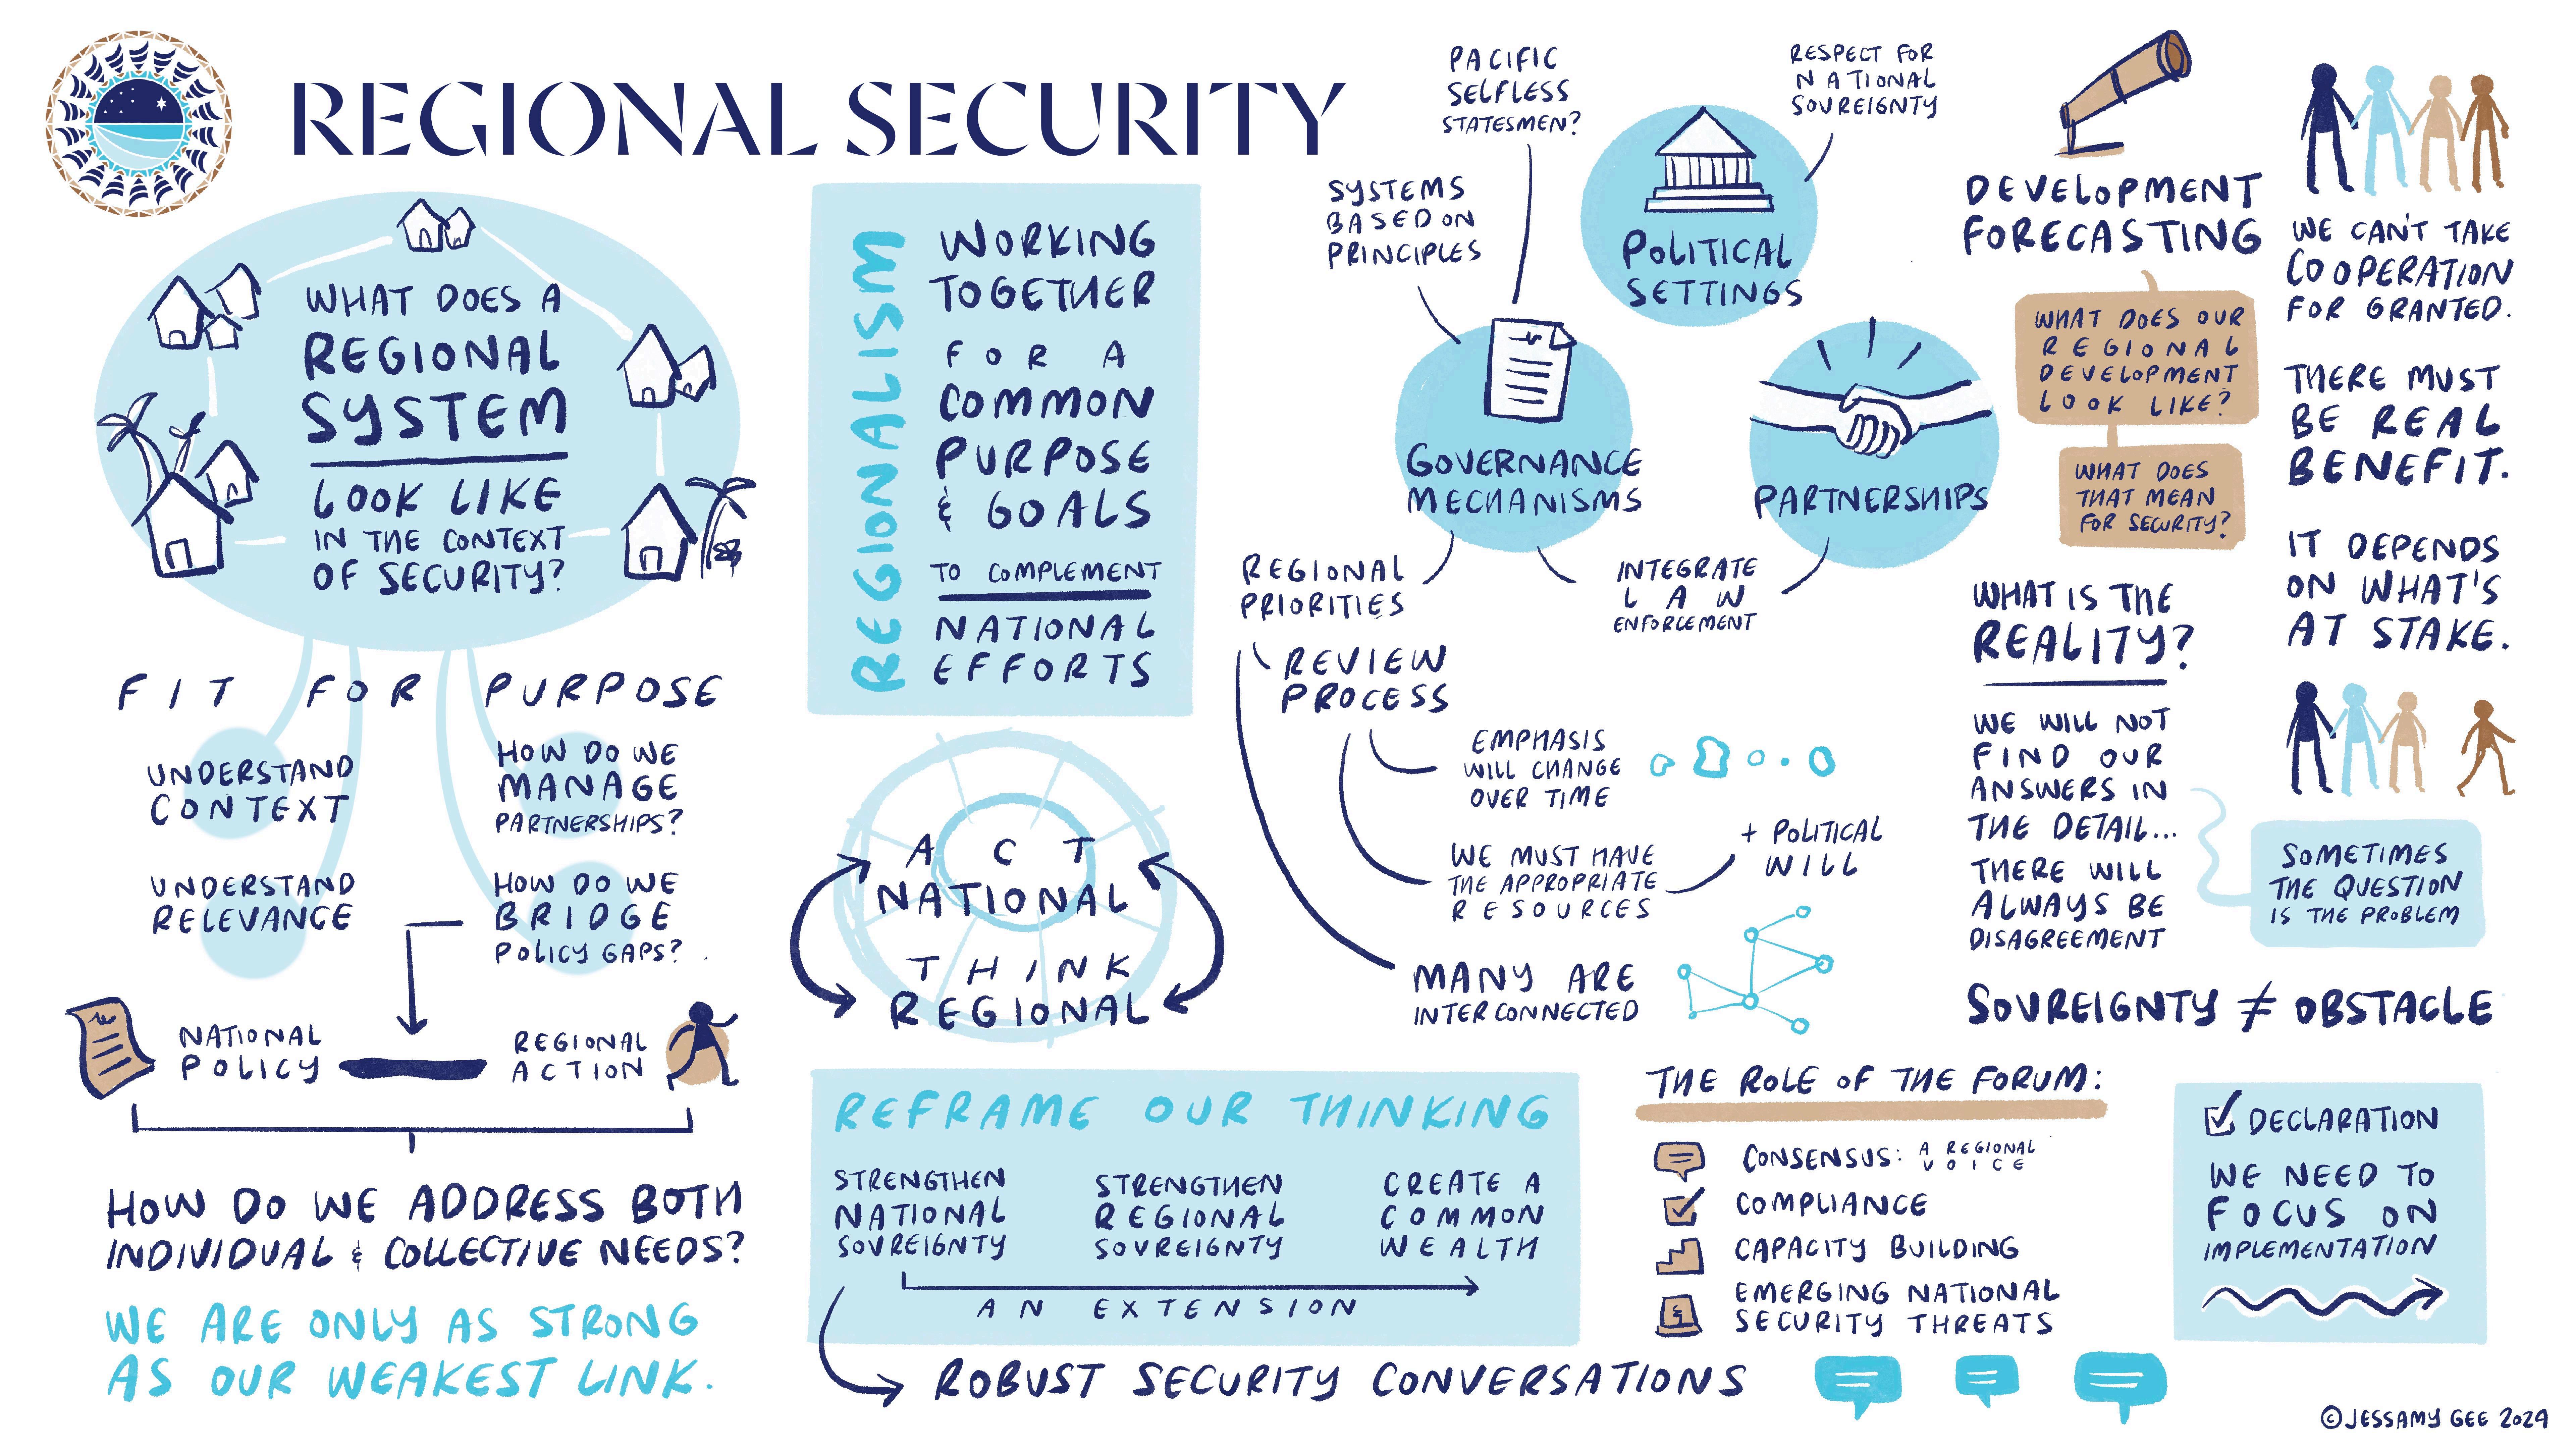 REGIONAL SECURITY
WHAT DOES A
REGIONAL
SYSTEM
LOOK LIKE
IN THE CONTEXT
OF SECURITY?
FIT FOR PURPOSE
UNDERSTAND
CONTEXT
UNDERSTAND
RELEVANCE
HOW DO WE
MANAGE
PARTNERSHIPS?
HOW DO WE
BRIDGE
POLICY GAPS?
NATIONAL
POLICY
REGIONAL
ACTION
HOW DO WE ADDRESS BOTH
INDIVIDUAL & COLLECTIVE NEEDS?
WE ARE ONLY AS STRONG
AS OUR WEAKEST LINK.
REGIONALISM
WORKING
TOGETHER
FOR A
COMMON
PURPOSE
& GOALS
TO COMPLEMENT
NATIONAL
EFFORTS
ACT
NATIONAL
THINK
REGIONAL
REFRAME OUR THINKING
STRENGTHEN
NATIONAL
SOVREIGNTY
STRENGTHEN
REGIONAL
SOVREIGNTY
CREATE A
COMMON
WEALTH
AN EXTENSION
ROBUST SECURITY CONVERSATIONS
PACIFIC
SELFLESS
STATESMEN?
SYSTEMS
BASED ON
PRINCIPLES
RESPECT FOR
NATIONAL
SOVREIGNTY
POLITICAL
SETTINGS
GOVERNANCE
MECHANISMS
PARTNERSHIPS
REGIONAL
PRIORITIES
INTEGRATE
LAW
ENFORCEMENT
REVIEW
PROCESS
EMPHASIS
WILL CHANGE
OVER TIME
WE MUST HAVE
THE APPROPRIATE
RESOURCES
+ POLITICAL
WILL
MANY ARE
INTERCONNECTED
DEVELOPMENT
FORECASTING
WHAT DOES OUR
REGIONAL
DEVELOPMENT
LOOK LIKE?
WHAT DOES
THAT MEAN
FOR SECURITY?
WE CAN'T TAKE
COOPERATION
FOR GRANTED.
THERE MUST
BE REAL
BENEFIT.
IT DEPENDS
ON WHAT'S
AT STAKE.
WHAT IS THE
REALITY?
WE WILL NOT
FIND OUR
ANSWERS IN
THE DETAIL...
THERE WILL
ALWAYS BE
DISAGREEMENT
SOMETIMES
THE QUESTION
IS THE PROBLEM
SOVREIGNTY ≠ OBSTACLE
THE ROLE OF THE FORUM:
CONSENSUS: A REGIONAL
VOICE
COMPLIANCE
CAPACITY BUILDING
EMERGING NATIONAL
SECURITY THREATS
DECLARATION
WE NEED TO
FOCUS ON
IMPLEMENTATION
©JESSAMY GEE 2024